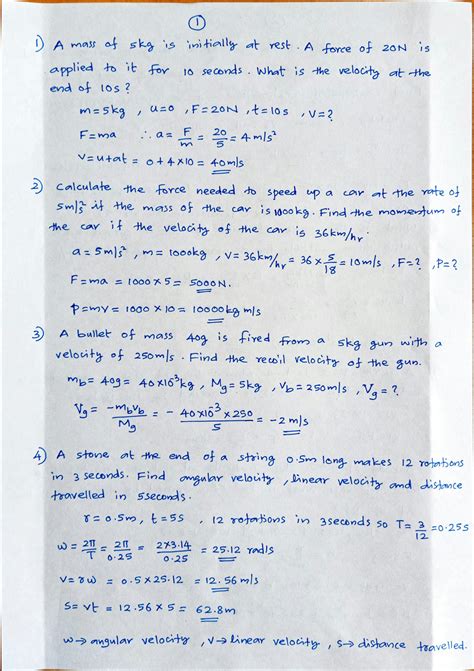 1
1) A mass of 5kg is initially at rest. A force of 20N is
applied to it for 10 seconds. What is the velocity at the
end of 10s?
m=5kg, u=0, F=20N, t=10s, v=?
F=ma ∴ a = F/m = 20/5 = 4 m/s²
v=u+at = 0+4×10 = 40m/s
2) Calculate the force needed to speed up a car at the rate of
5m/s² if the mass of the car is 1000kg. Find the momentum of
the car if the velocity of the car is 36km/hr.
a=5m/s², m=1000kg, v=36km/hr = 36×5/18 = 10m/s, F=?, P=?
F=ma = 1000×5 = 5000N.
p=mv = 1000×10 = 10000kg m/s
3) A bullet of mass 40g is fired from a 5kg gun with a
velocity of 250m/s. Find the recoil velocity of the gun.
mb=40g = 40×10⁻³kg, Mg=5kg, vb=250m/s, Vg=?
Vg = -mbvb/Mg = -40×10⁻³×250/5 = -2m/s
4) A stone at the end of a string 0.5m long makes 12 rotations
in 3 seconds. Find angular velocity, linear velocity and distance
travelled in 5seconds.
r=0.5m, t=5s, 12 rotations in 3seconds so T=3/12=0.25s
ω=2π/T = 2π/0.25 = 2×3.14/0.25 = 25.12 rad/s
v=rω = 0.5×25.12 = 12.56m/s
s=vt = 12.56×5 = 62.8m
ω→angular velocity, v→linear velocity, s→distance travelled.